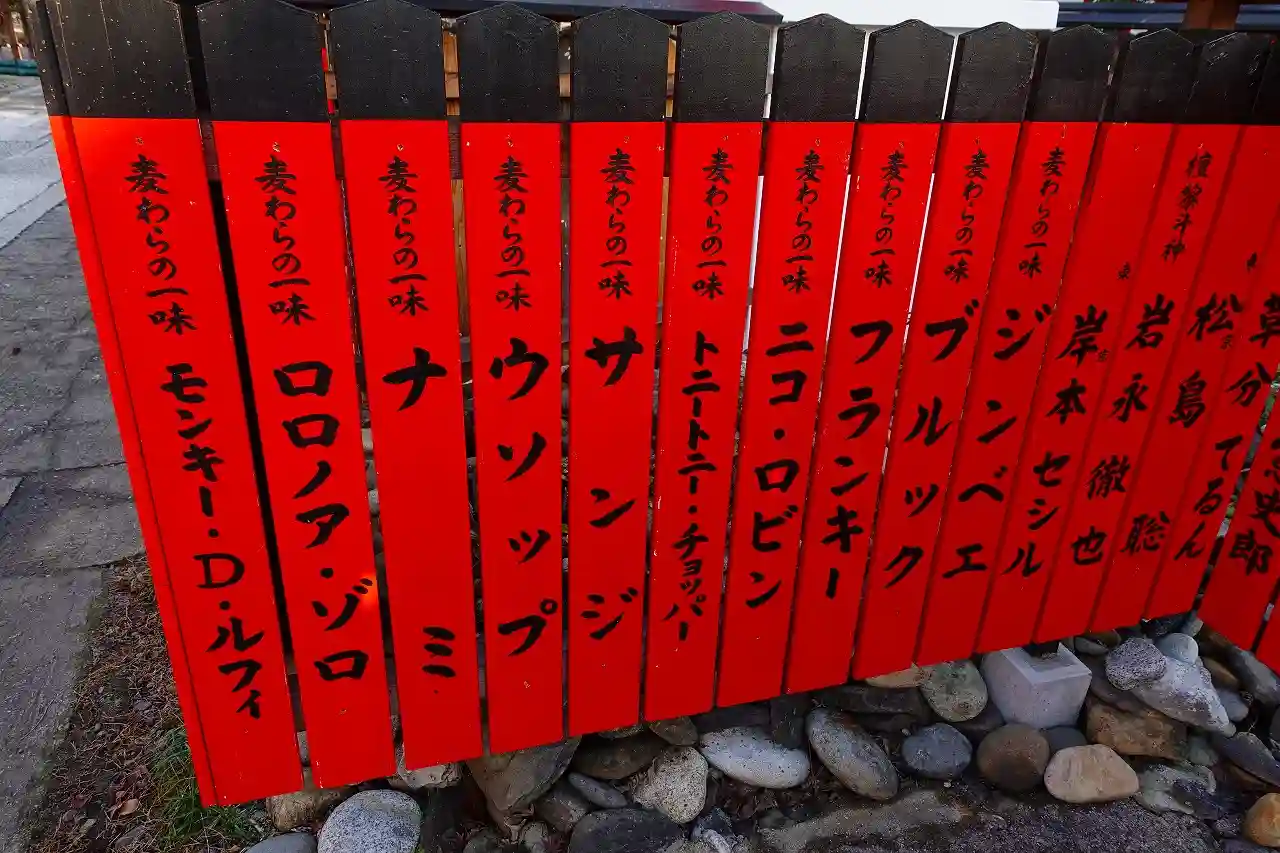 麦わらの一味 モンキー・D・ルフィ
麦わらの一味 ロロノア・ゾロ
麦わらの一味 ナミ
麦わらの一味 ウソップ
麦わらの一味 サンジ
麦わらの一味 トニートニー・チョッパー
麦わらの一味 ニコ・ロビン
麦わらの一味 フランキー
麦わらの一味 ブルック
麦わらの一味 ジンベエ
岸本セシル
檀黎斗神 岩永徹也
松島聡
草分てるん
史郎